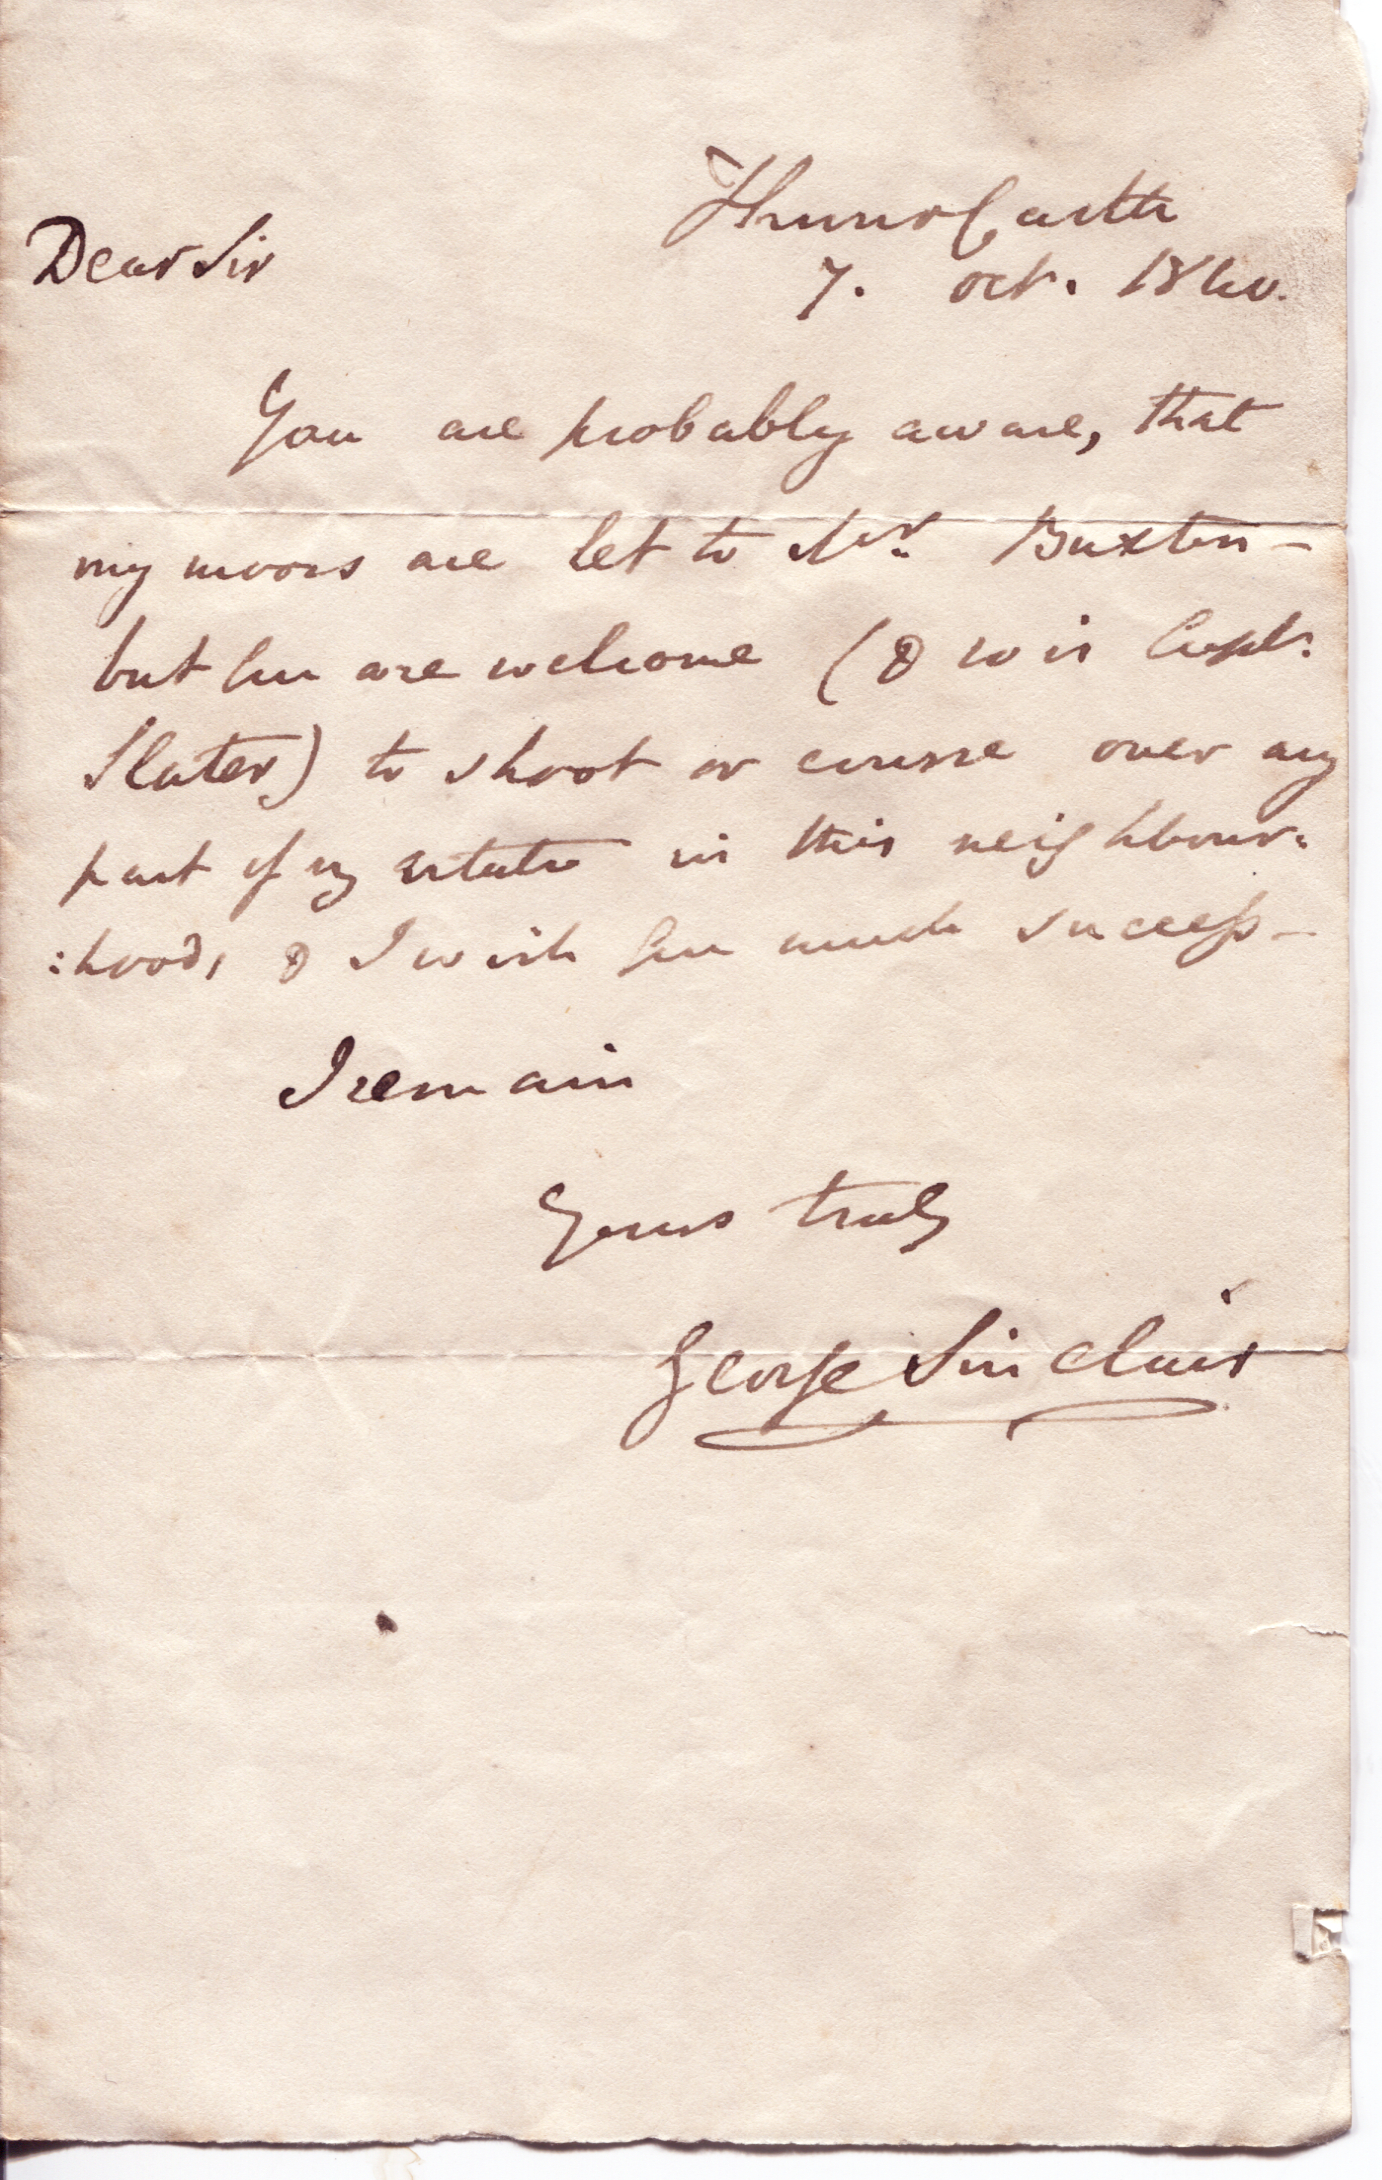 Thurso Castle
Dear Sir
7. Oct. 1840.
You are probably aware, that
my moors are let to Mr. Buxton –
but you are welcome (& so is Capt.
Slater) to shoot or course over any
part of my estate in this neighbour:
:hood, & I wish you much success –
I remain
Yours truly
George Sinclair